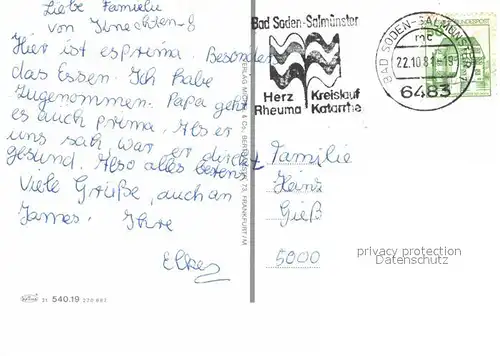 Liebe Familie
von
Hier ist es prima. Besonders
das Essen. Ich habe
zugenommen. Papa geht
es auch prima. Als er
uns sah, war er direkt
gesund. Also alles bestens
Viele Grüße, auch an
James. Ihre
Elke
Bad Soden-Salmünster
Herz Kreislauf
Rheuma Katarrhe
BAD SODEN-SALMÜNSTER
mc
22.10.81-19
6483
Familie
Heinz
Gieß
5000
privacy protection
Datenschutz
21 540.19
FRANKFURT/M